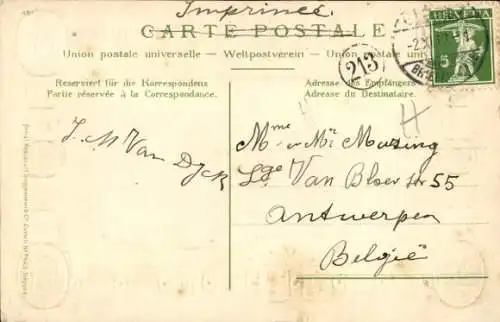 Imprimée
CARTE POSTALE
Union postale universelle — Weltpostverein — Union postale
Reserviert für die Korrespondenz
Partie réservée à la Correspondance.
Adresse des Empfängers
Adresse du Destinataire.
213
HELVETIA
5
J. M. Van Dyck
Mme en Mr
Lge Van Bloer str 55
Antwerpen
België